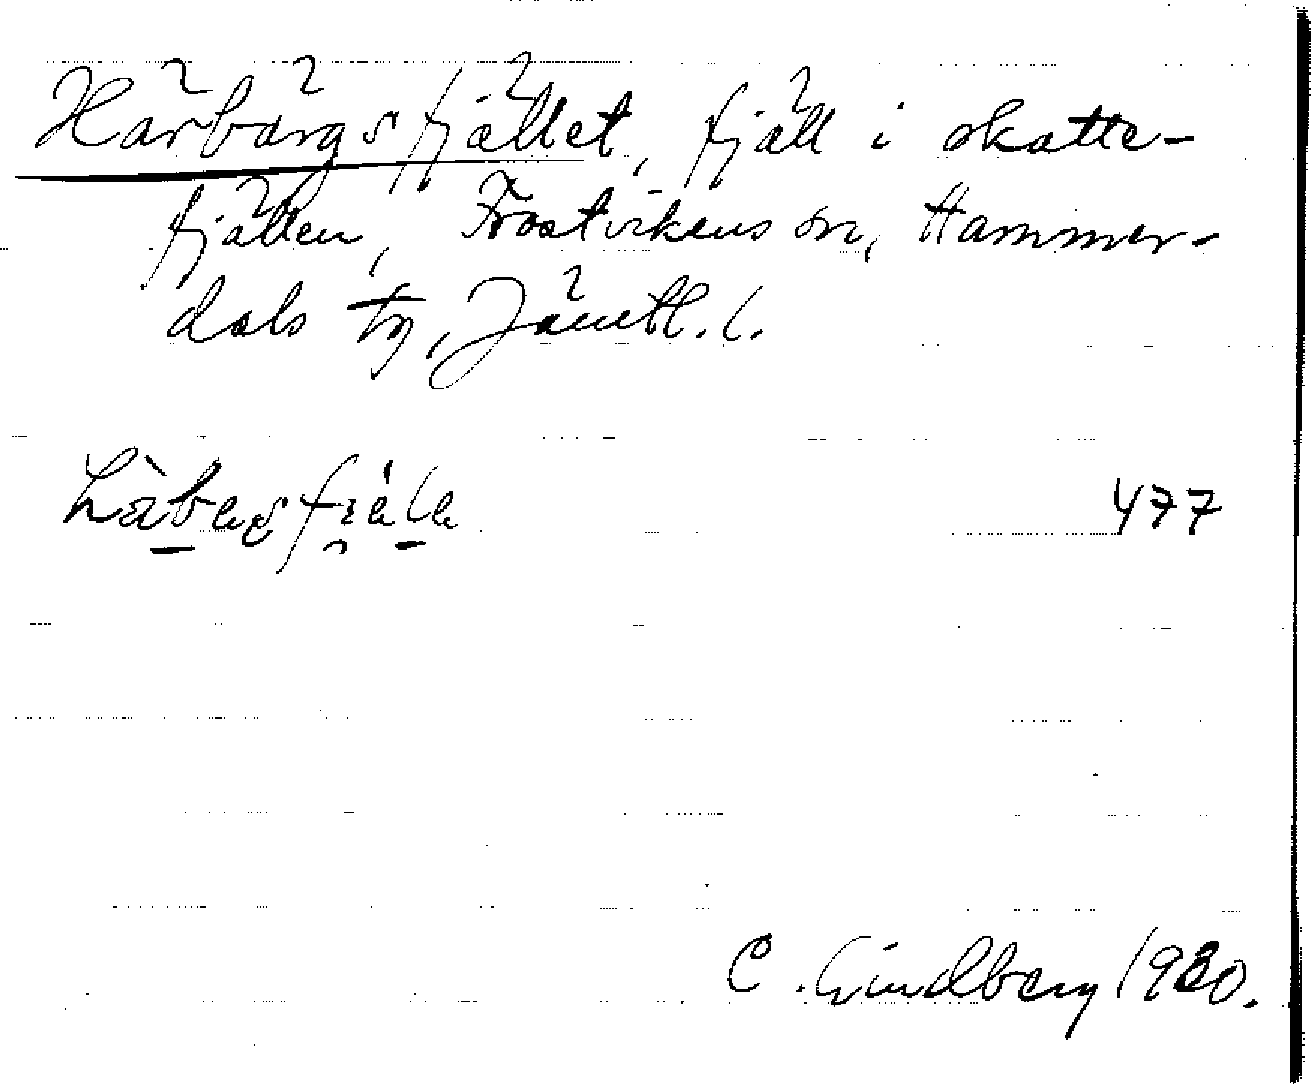 Härbärgsfjället, fjäll i skatte-
fjällen, Frostvikens sn, Hammer-
dals tg, Jämtl. l.
477
C. Lindberg 1930.